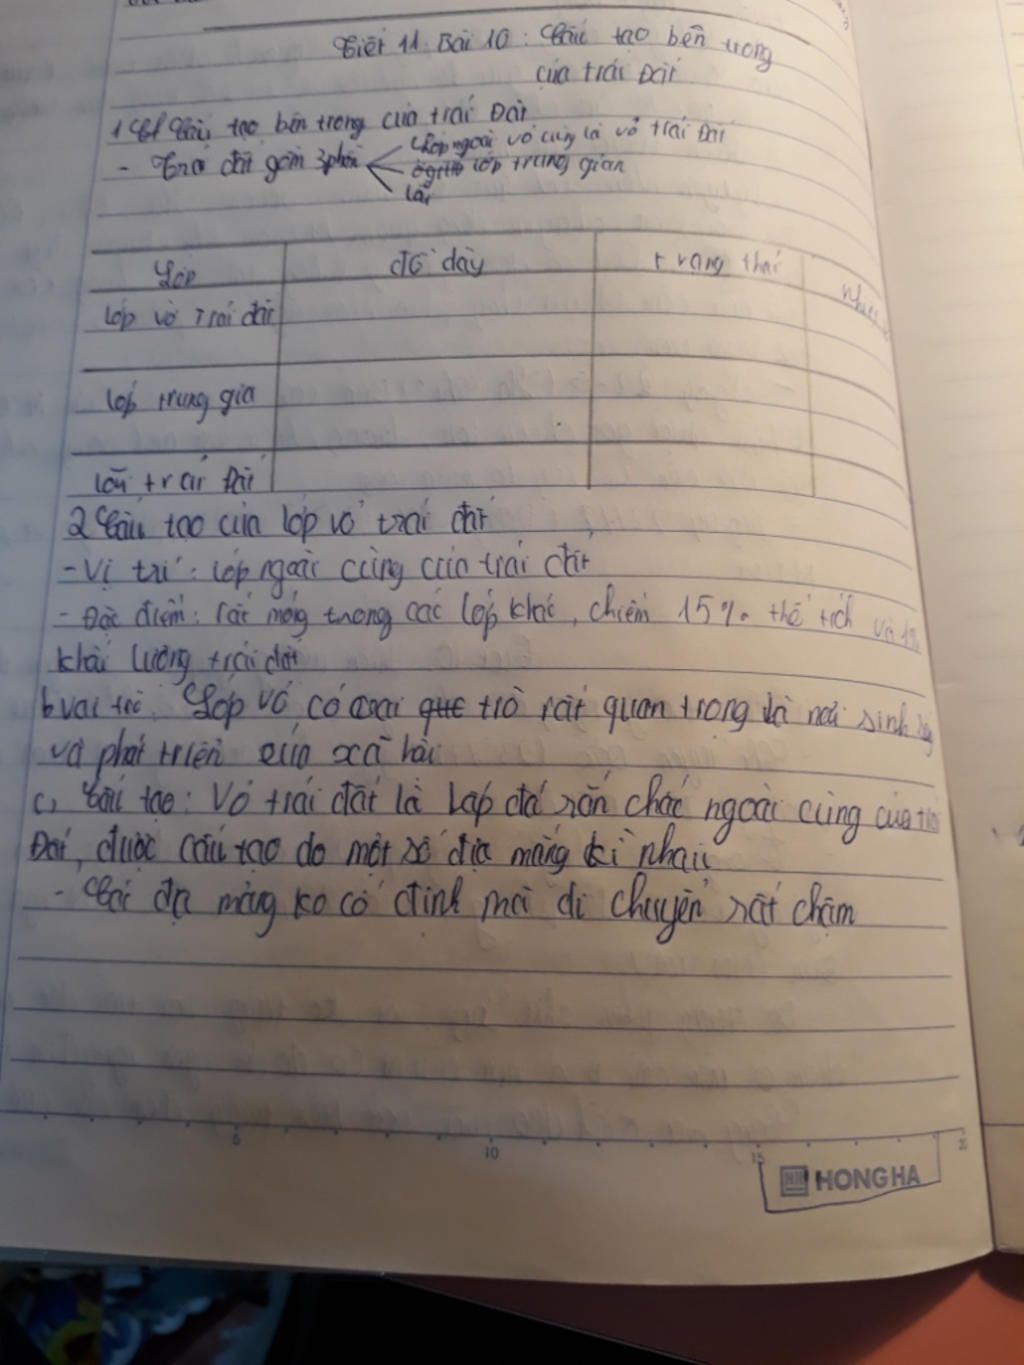 Tiết 11. Bài 10: Cấu tạo bên trong
của trái Đất
1 Cấu tạo bên trong của trái Đất
- Trái đất gồm 3 phần
Lớp ngoài vỏ cùng là vỏ trái Đất
ở giữa lớp trung gian
lõi
Lớp độ dày trạng thái
lớp vỏ Trái đất
lớp trung gia
lõi trái Đất
2 Cấu tạo của lớp vỏ trái đất
- Vị trí: lớp ngoài cùng của trái đất
- Đặc điểm: rất mỏng trong các lớp khác, chiếm 15% thể tích và 1%
khối lượng trái đất
b vai trò. Lớp vỏ có vai trò rất quan trọng là nơi sinh sống
và phát triển của xã hội
c, Cấu tạo: Vỏ trái đất là lớp đá rắn chắc ngoài cùng của trái
Đất, được cấu tạo do một số địa mảng kì nhau
- Các địa mảng ko cố định mà di chuyển rất chậm
5
10
15
HH HONG HA